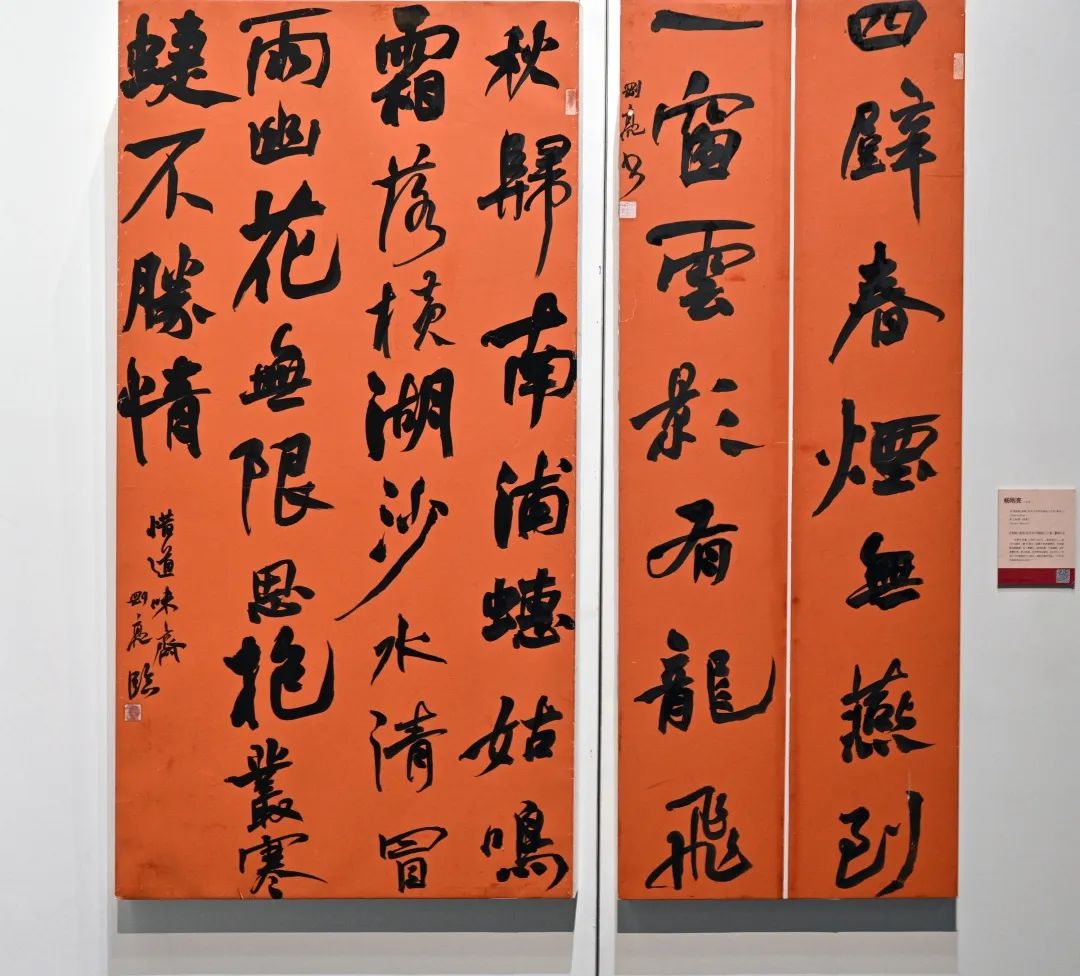 四壁春煙無燕到
一窗雲影有龍飛
剛亮書
秋歸南浦蟪蛄鳴
霜落橫湖沙水清冒
雨幽花無限思抱叢寒
蜨不勝情
惜道味齋
剛亮臨
杨刚亮